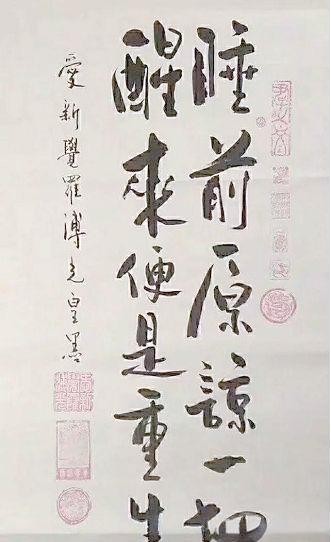 睡前原諒一切
醒來便是重生
愛新覺羅溥元皇墨